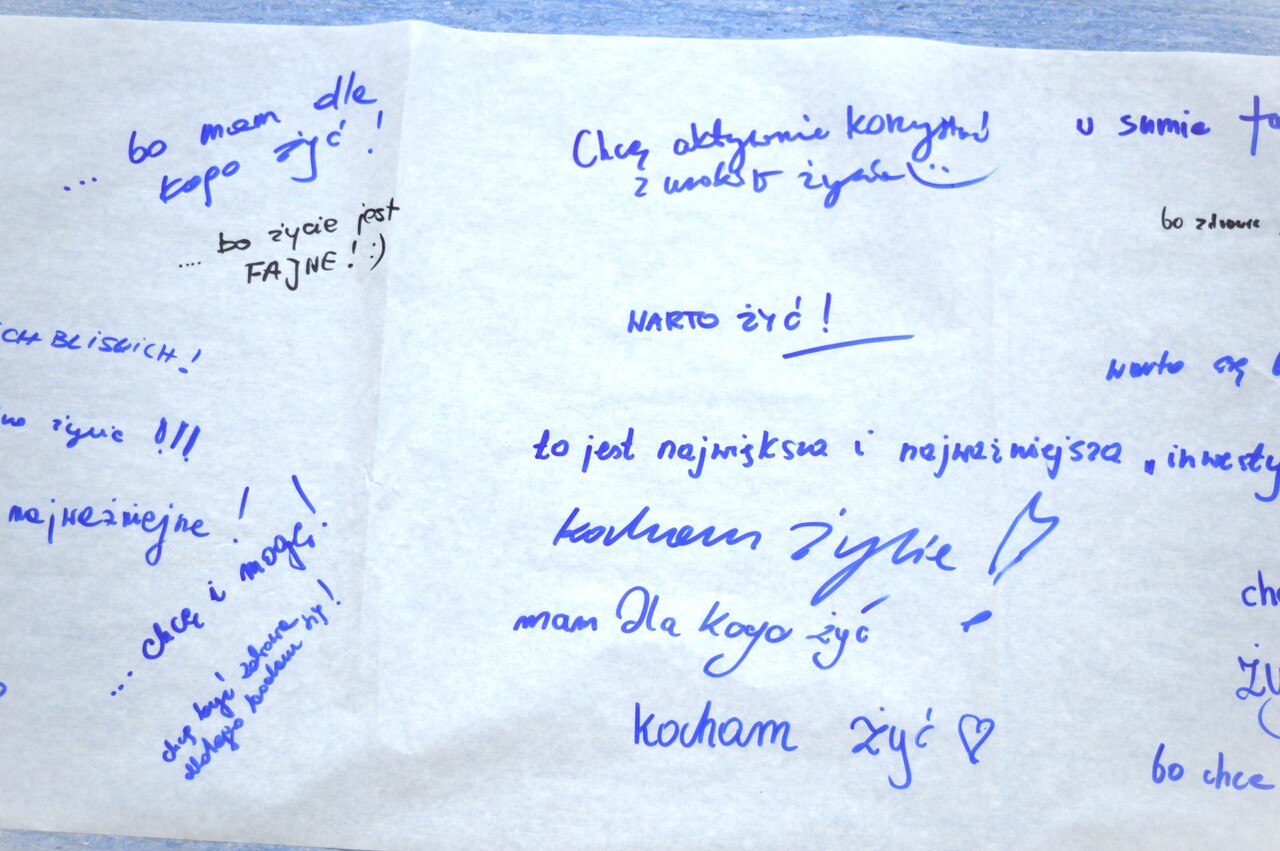 ... bo mam dla
kogo żyć!
.... bo życie jest
FAJNE! :)
ICH BLISKICH!
życie !!!
najważniejsze!
... chcę i mogę!
chcę być zdrowa
dlatego badam się!
Chcę aktywnie korzystać
z uroków życia
WARTO ŻYĆ!
to jest największa i najważniejsza „inwesty
kocham życie!
mam dla kogo żyć
kocham żyć ♡
u sumie ta
bo zdrowie
warto się
chc
ży
bo chce